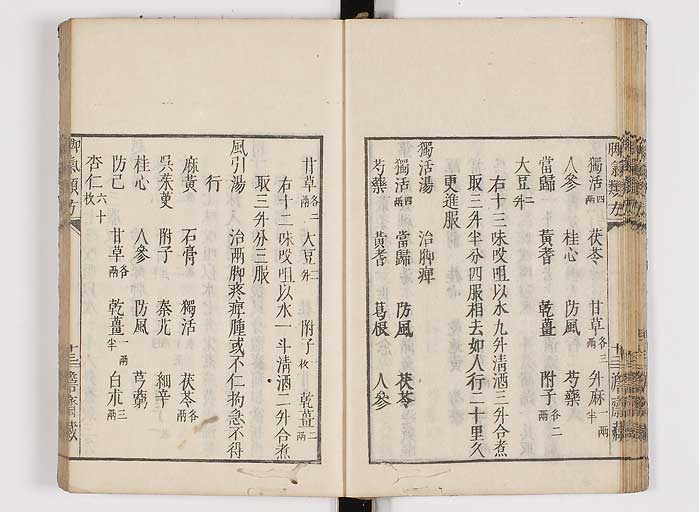 獨活四兩 茯苓 甘草各三兩 升麻半兩
人參 桂心 防風 芍藥
當歸 黃耆 乾薑 附子各二兩
大豆二升
右十三味㕮咀以水九升清酒三升合煮
取三升半分四服相去如人行二十里久
更進服
獨活湯 治脚痺
獨活四兩 當歸 防風 茯苓
芍藥 黃耆 葛根 人參
甘草各二兩 大豆一升 附子枚 乾薑二兩
右十二味㕮咀以水一斗清酒二升合煮
取三升分三服
風引湯 治兩脚疼痺腫或不仁拘急不得
行
麻黃 石膏 獨活 茯苓各兩
吳茱萸 附子 秦艽 細辛
桂心 人參 防風 芎藭
防己 甘草各兩 乾薑一兩半 白朮三兩
杏仁六十枚
脚氣類方 十三 濟齋藏